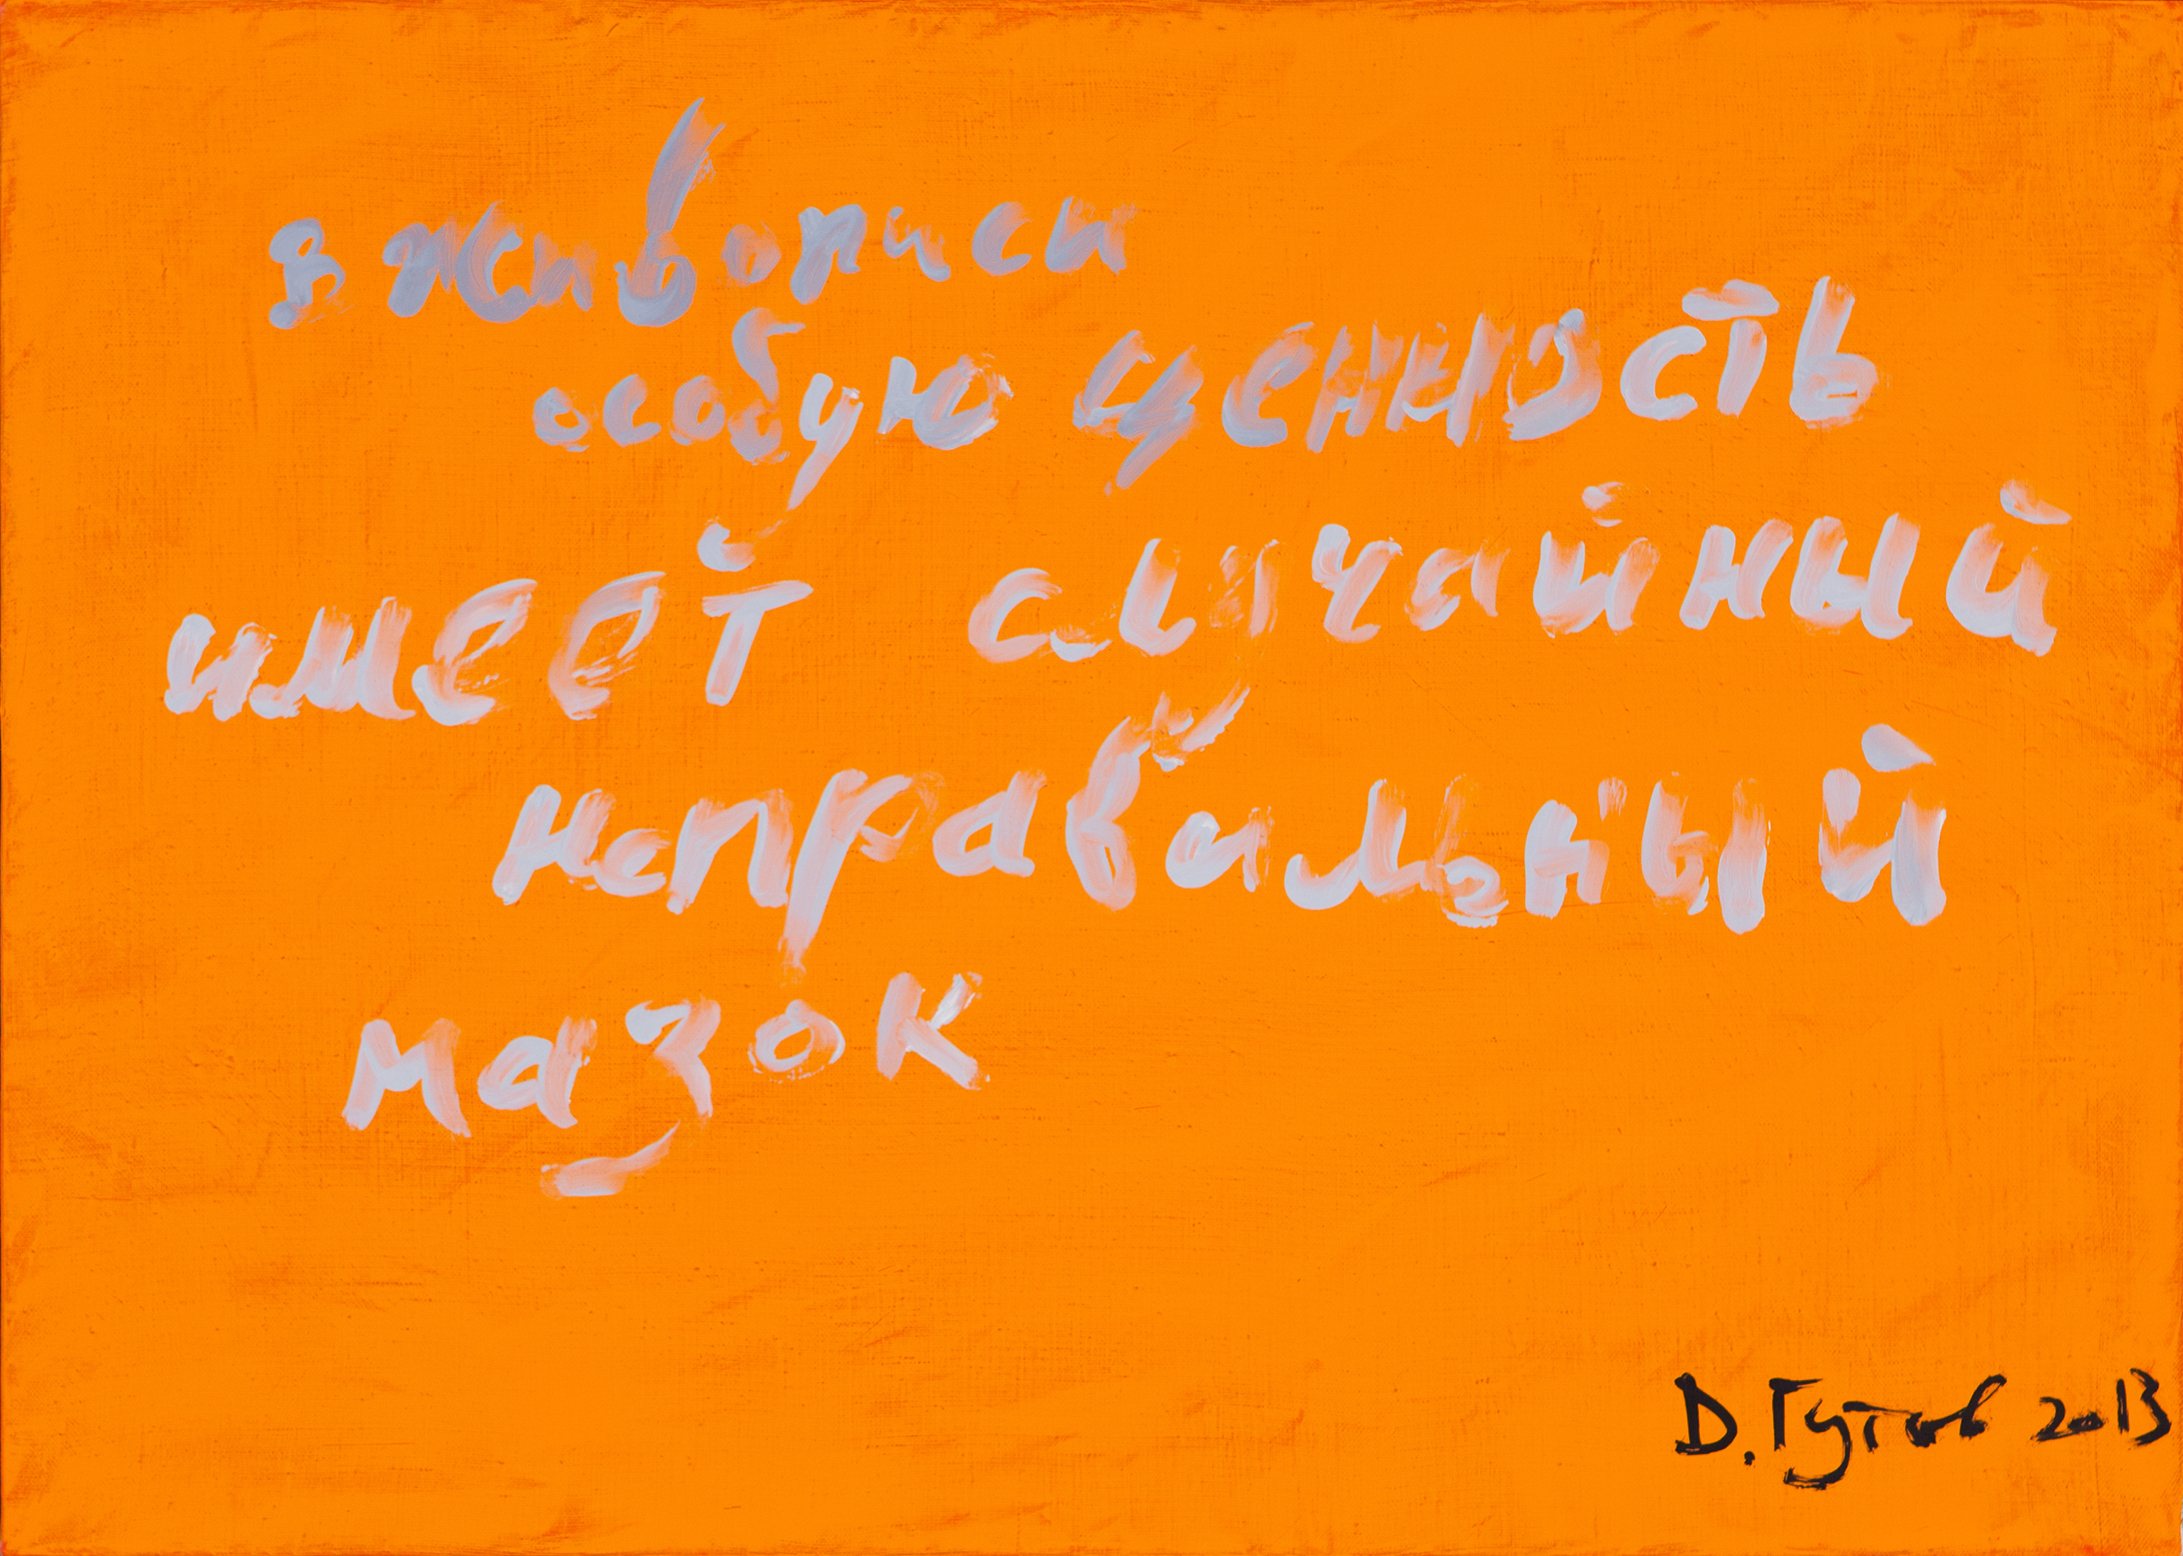 в живописи
особую ценность
имеет случайный
неправильный
мазок
D. Гутов 2013